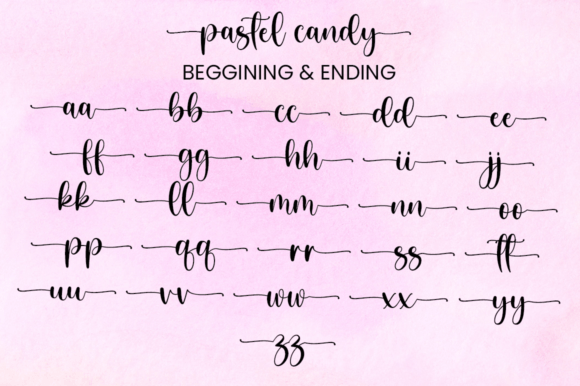 pastel candy
BEGGINING & ENDING
aa bb cc dd ee
ff gg hh ii jj
kk ll mm nn oo
pp qq rr ss tt
uu vv ww xx yy
zz